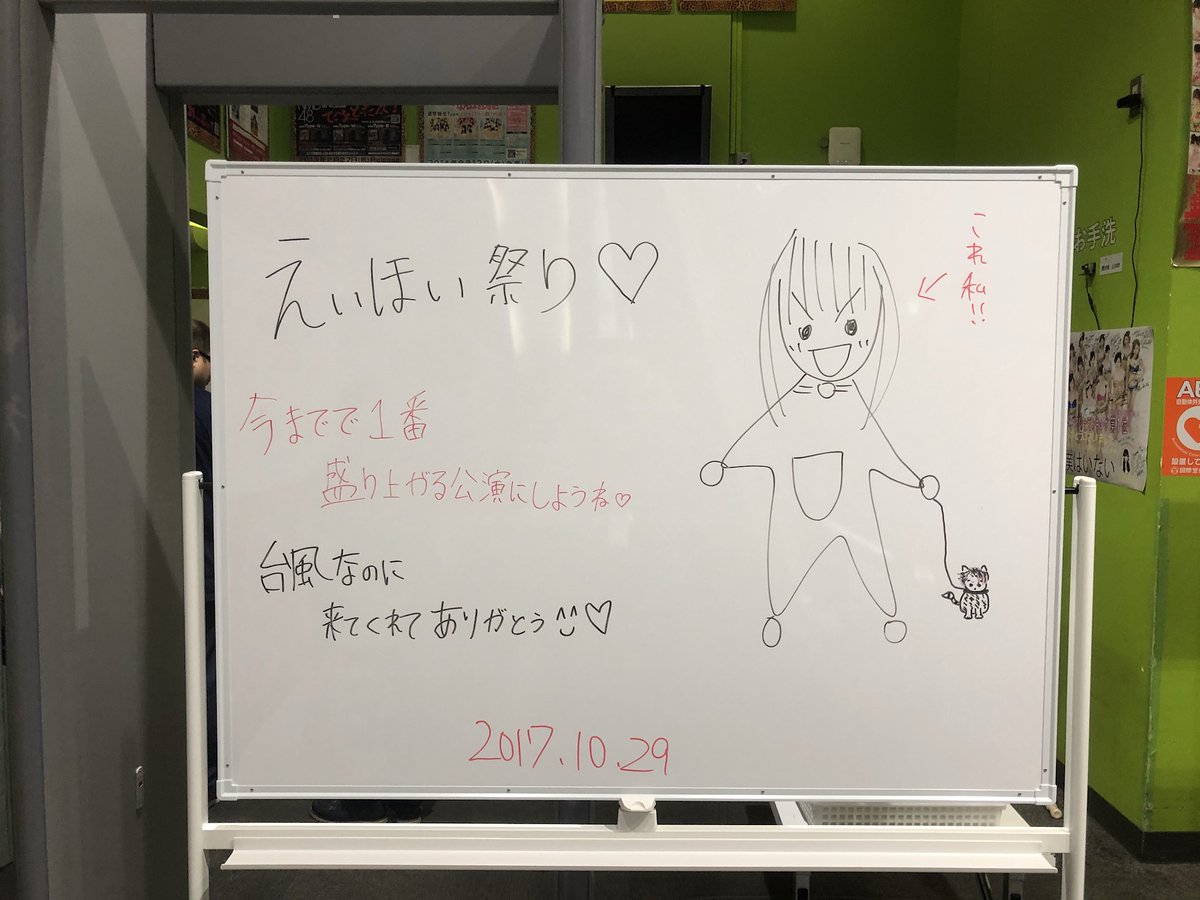 えいほい祭り♡
今までで1番
盛り上がる公演にしようね♡
台風なのに
来てくれてありがとう^^♡
2017.10.29
これ私!!
お手洗
僕はいない
48